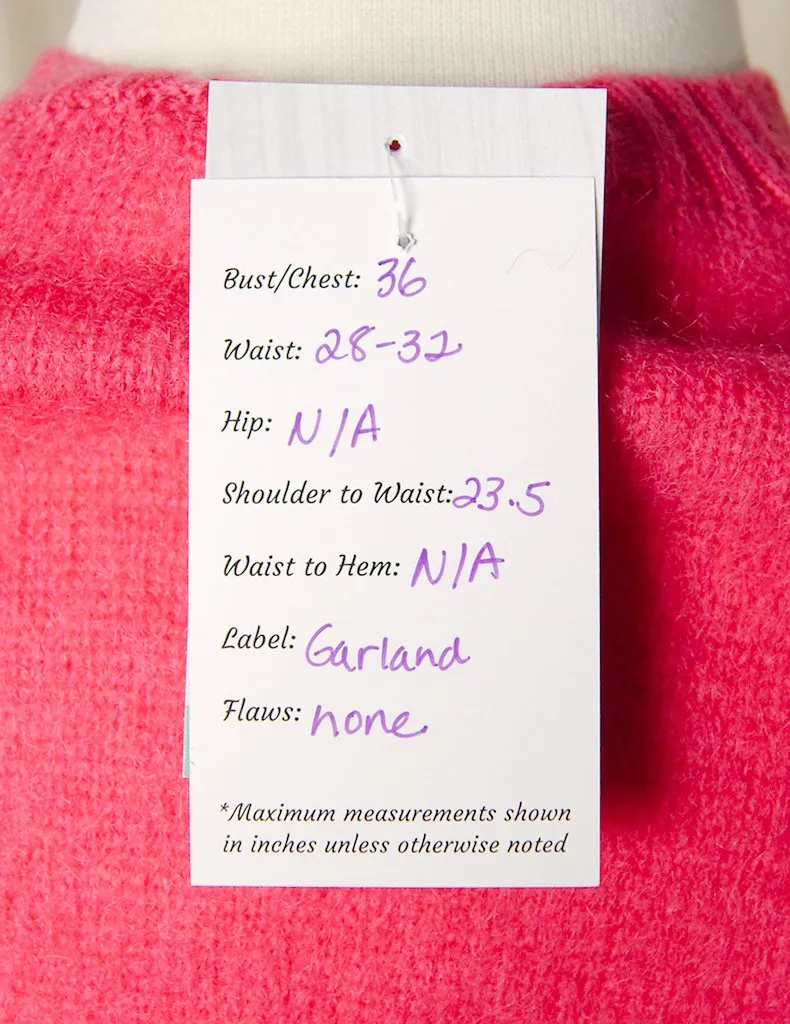 Bust/Chest: 36
Waist: 28-32
Hip: N/A
Shoulder to Waist: 23.5
Waist to Hem: N/A
Label: Garland
Flaws: none
*Maximum measurements shown
in inches unless otherwise noted